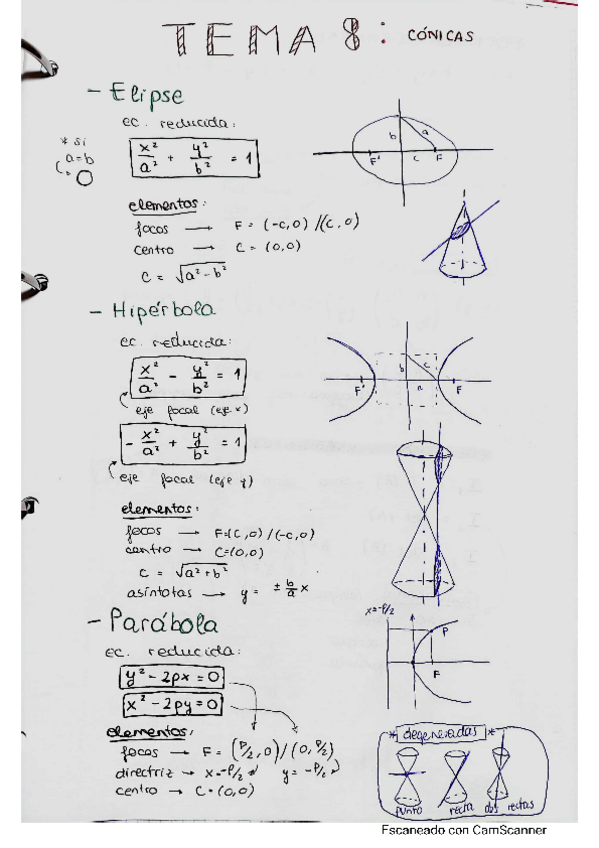 TEMA 8: CÓNICAS
- Elipse
ec. reducida:
* si
a=b
x²/a² + y²/b² = 1
b a
F' c F
elementos:
focos → F = (-c,0) / (c,0)
centro → C = (0,0)
C = √a²-b²
- Hipérbola
ec. reducida:
x²/a² - y²/b² = 1
eje focal (eje x)
b c
F' a F
- x²/a² + y²/b² = 1
eje focal (eje y)
elementos:
focos → F=(C,0) / (-c,0)
centro → C=(0,0)
C = √a²+b²
asíntotas → y = ± b/a x
- Parábola
x=-P/2
P
F
ec. reducida:
y² - 2px = 0
x² - 2py = 0
elementos:
focos → F = (P/2, 0) / (0, P/2)
directriz → x=-P/2 y = -P/2
centro → C = (0,0)
* degeneradas *
punto recta dos rectas
Escaneado con CamScanner